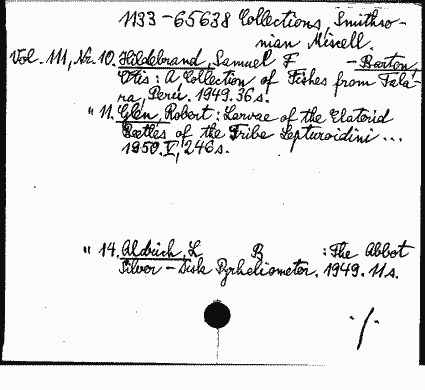 1133-65638 Collections, Smithso-
nian Miscell.
Vol. 111, Nr. 10. Hildebrand, Samuel F - Barton,
Otis: A Collection of Fishes from Tala-
ra, Peru. 1949. 36 s.
" 11. Glen, Robert: Larvae of the Elaterid
Beetles of the Tribe Lepturoidini ...
1950. V, 246 s.
" 14. Aldrich, L B : The Abbot
Silver-Disk Pyrheliometer. 1949. 11 s.